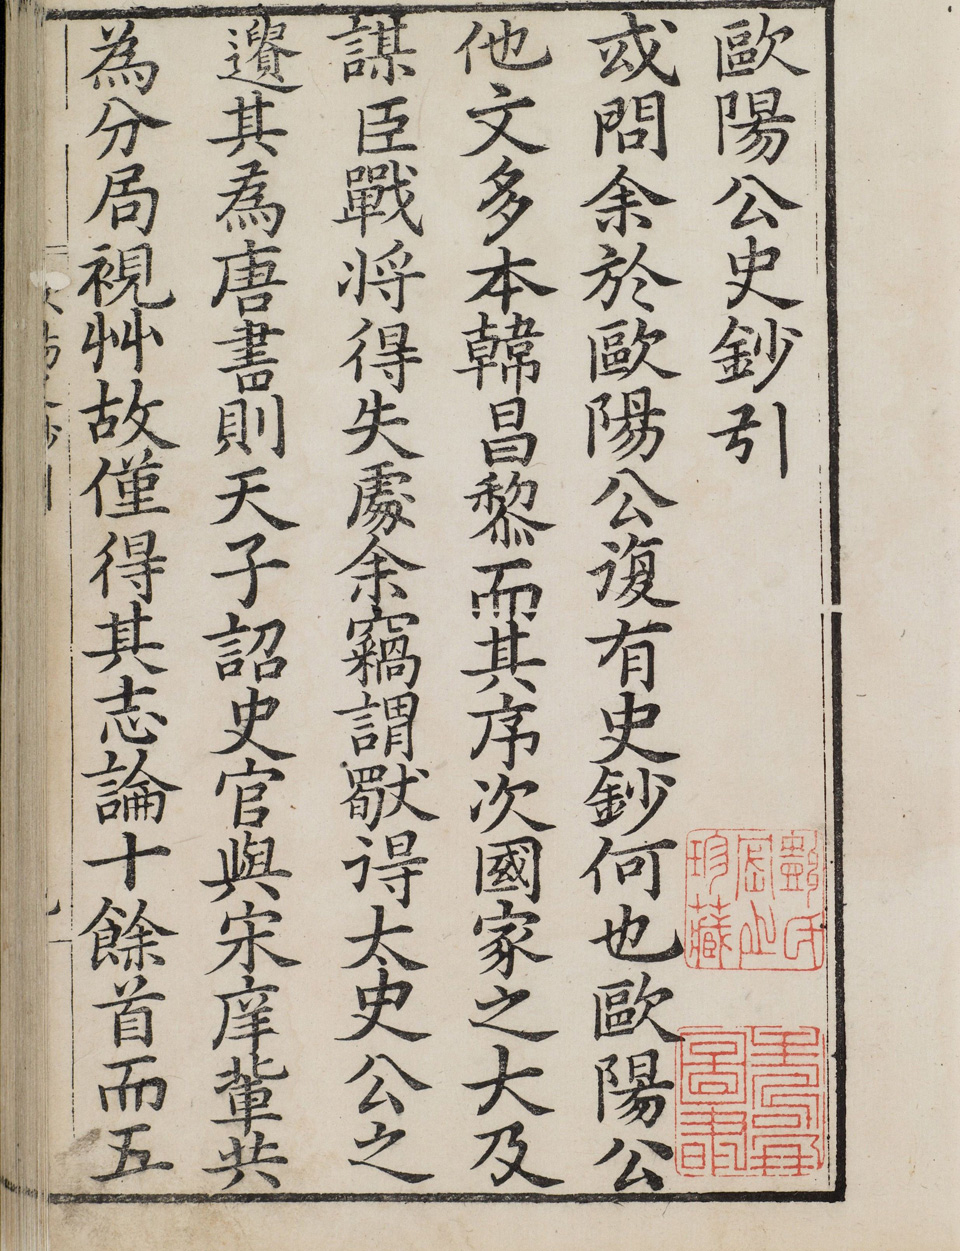 歐陽公史鈔引
或問余於歐陽公復有史鈔何也歐陽公
他文多本韓昌黎而其序次國家之大及
謀臣戰將得失處余竊謂獸得太史公之
遺其為唐書則天子詔史官與宋庠輩共
為分局視艸故僅得其志論十餘首而五
珍藏